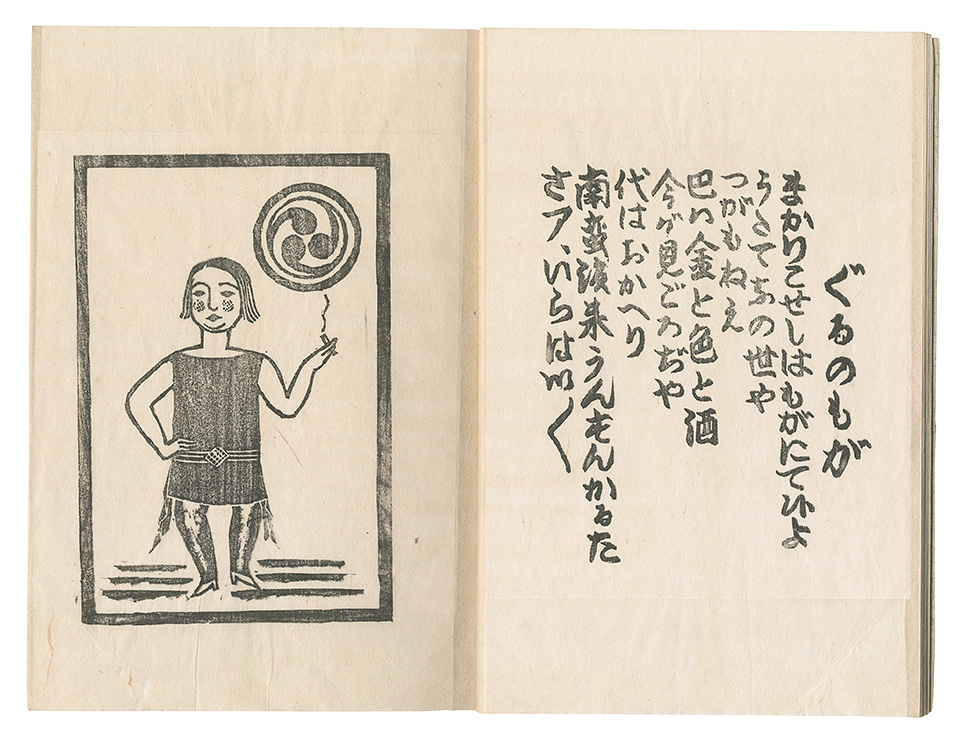 ぐるのもが
まかりこせしはもがにて候よ
の世や
つがもねえ
巴ハ金と色と酒
今が見ごろぢや
代はおかへり
南蛮渡来うんすんかるた
さア、いらはい〱